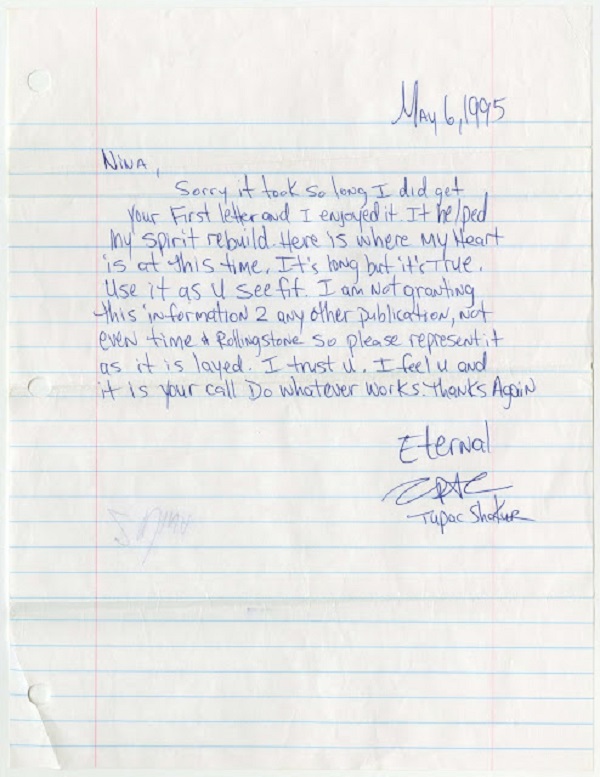 May 6, 1995
Nina,
Sorry it took so long I did get
your First letter and I enjoyed it. It helped
my spirit rebuild. Here is where my Heart
is at this time. It's long but it's True.
Use it as U see fit. I am Not granting
this information 2 any other publication, Not
even time & Rollingstone so please represent it
as it is layed. I trust U. I feel u and
it is your call Do whatever works. Thanks Again
Eternal
2PAC
Tupac Shakur